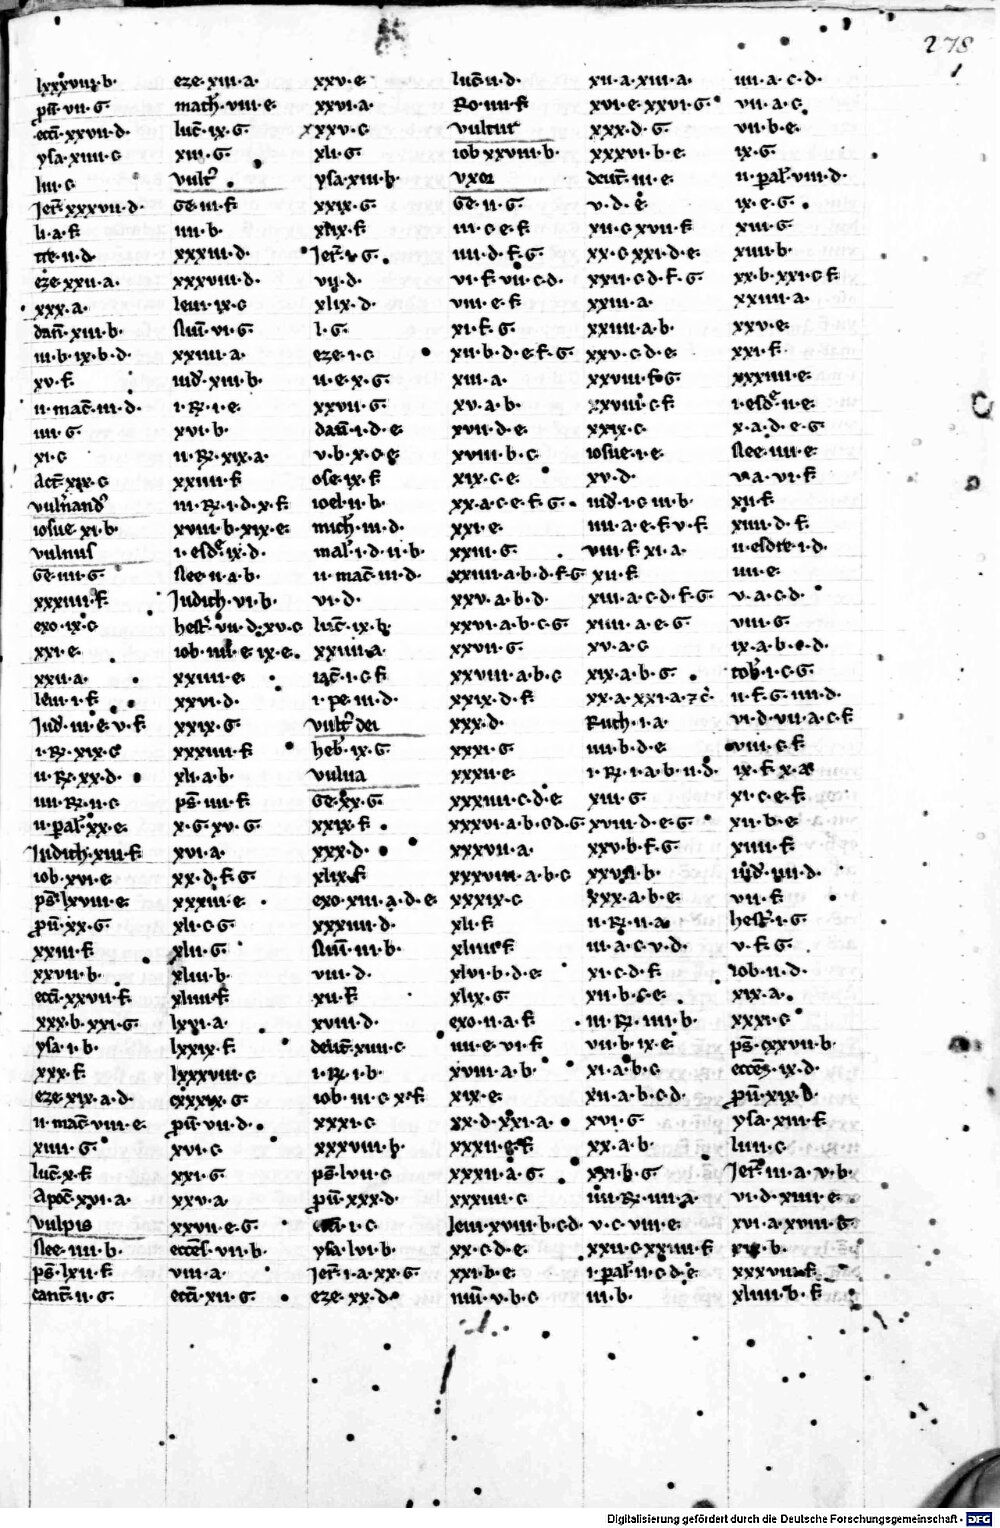 278
lxxxviii·b·
pͫu·vii·G·
eccͫi·xxvii·d·
ysa·xiiii·c
liii·c
Jerͫ·xxxvii·d·
li·a·f
tre·ii·d·
eze·xxii·a·
xxx·a·
danͫ·xiii·b·
iii·b·ix·b·d·
xv·f·
ii·macͫ·iii·d·
iiii·G
xi·c
Actͫ·xix·c
vulnͫandͫ
iosue·xi·b·
vulnus
Ge·iiii·G·
xxxiiii·f
exo·ix·c
xxi·e·
xxii·a·
leui·i·f
Judͫ·iii·e·v·f
i·R·xix·c
ii·R·xx·d·
iiii·R·ii·c
ii·palͫ·xx·e·
Judich·xiii·f
iob·xvi·e
psͫ·lxviii·e
pͫu·xx·G·
xxiii·f
xxvii·b·
eccͫi·xxvii·f
xxx·b·xxi·G
ysa·i·b·
xxx·f·
eze·xix·a·d·
ii·macͫ·viii·e·
xiiii·G·
lucͫ·x·f
Apocͫ·xvi·a·
vulpis
Nee·iiii·b·
psͫ·lxii·f
cantͫ·ii·G
eze·xiii·a·
mathͫ·viii·e·
lucͫ·ix·G·
xiii·G·
vultͫ
Ge·iii·f
iiii·b·
xxxiii·d·
xxxviii·d·
leui·ix·c
Numͫ·vi·G·
xxiiii·a·
iudͫ·xiii·b·
i·R·i·e·
xvi·b·
ii·R·xix·a·
xxiiii·f
iii·R·i·d·x·f
xviii·b·xix·e·
i·esdͫ·ix·d·
Nee·ii·a·b·
Judich·vi·b·
hestͫ·vii·d·xv·c
iob·iiii·e·ix·e·
xxiiii·e·
xxvi·d·
xxix·G
xxxiiii·f
xli·a·b·
psͫ·iiii·f
x·G·xv·G·
xvi·a·
xx·d·f·G
xxxiii·e·
xli·c·G
xlii·G·
xliii·b·
xliiii·f
lxxi·a·
lxxix·f
lxxxviii·c
cxxxix·G
pͫu·vii·d·
xvi·c
xxi·G
xxv·a
xxvii·e·G·
eccesͫ·vii·b·
viii·a·
eccͫi·xii·G·
xxv·e
xxvi·a·
xxxv·c
xli·G
ysa·xiii·b·
xxix·G
xlix·f
Jerͫ·v·G·
vii·d·
xlix·d·
l·G
eze·i·c
ii·e·x·G
xxvii·G
danͫ·i·d·e
v·b·x·c·e
ose·ix·f
ioel·ii·b·
michͫ·iii·d·
malͫ·i·d·ii·b·
ii·macͫ·iii·d·
vi·d·
lucͫ·ix·b·
xxiiii·a·
iacͫ·i·c·f
i·pe·iii·d·
vultͫ dei
hebͫ·ix·G
vulua
Ge·xx·G
xxix·f
xxx·d·
xlix·f
exo·xiii·a·d·e
xxxiiii·d·
Numͫ·iii·b·
viii·d·
xii·f
xviii·d·
deutͫ·xiii·c
i·R·i·b·
iob·iii·c·x·f
xxxi·c
xxxviii·b·
psͫ·lvii·c
pͫu·xxx·d·
eccͫi·i·c
ysa·lvi·b·
Jerͫ·i·a·xx·G
eze·xx·d·
lucͫ·ii·d·
Ro·iiii·f
vultur
iob xxviii·b·
vxor
Ge·ii·G·
iii·c·e·f
iiii·d·f·G
vi·f·vii·c·d·
viii·e·f
xi·f·G
xii·b·d·e·f·G
xiii·a·
xv·a·b·
xvii·d·e
xviii·b·c
xix·c·e
xx·a·c·e·f·G
xxi·e·
xxiii·G
xxiiii·a·b·d·f·G
xxv·a·b·d
xxvi·a·b·c·G
xxvii·G
xxviii·a·b·c
xxix·d·f
xxx·d·
xxxi·G
xxxii·e
xxxiiii·c·d·e
xxxvi·a·b·c·d·G
xxxvii·a·
xxxviii·a·b·c
xxxix·c
xli·f
xliiii·f
xlvi·b·d·e
xlix·G
exo·ii·a·f
iiii·e·vi·f
xviii·a·b·
xix·e
xx·d·xxi·a·
xxxii·g·f
xxxii·a·G
xxxiiii·c
leui·xviii·b·c·d·
xx·c·d·e
xxi·b·e
numͫ·v·b·c
xii·a·xiii·a·
xvi·e·xxvi·G
xxx·d·G
xxxvi·b·e
deutͫ·iii·e
v·d·e
xii·c·xvii·f
xx·c·xxi·d·e
xxii·c·d·f·G
xxiii·a·
xxiiii·a·b·
xxv·c·d·e
xxviii·f·G
xxviii·c·f
xxix·c
iosue·i·e·
xv·d·
iudͫ·i·c·iii·b·
iiii·a·e·f·v·f
viii·f·xi·a·
xii·f
xiii·a·c·d·f·G
xiiii·a·e·G
xv·a·c
xix·a·b·G
xx·a·xxi·a·
Ruth·i·a·
iiii·b·d·e
i·R·i·a·b·ii·d·
xiii·G
xviii·d·e·G
xxv·b·f·G
xxvii·b·
xxx·a·b·e
ii·R·ii·a
iii·a·c·v·d·
xi·c·d·f
xii·b·c·e
iii·R·iiii·b·
vii·b·ix·e
xi·a·b·c
xii·a·b·c·d·
xvi·G
xx·a·b·
xxi·b·G
iiii·R·iiii·a·
v·c·viii·e·
xxii·c·xxiiii·f
i·palͫ·ii·c·d·e
iii·b·
iiii·a·c·d·
vii·a·c
vii·b·e
ix·G
ii·palͫ·viii·d·
ix·e·G
xiii·G
xiiii·b·
xx·b·xxi·c·f
xxiiii·a·
xxv·e
xxi·f
xxxiiii·e
i·esdͫ·ii·e
x·a·d·e·G
Nee·iiii·e
v·a·vi·f
xii·f
xiiii·d·f
ii·esdre·i·d·
iiii·e
v·a·c·d·
viii·G
ix·a·b·c·d
tobͫ·i·c·G
ii·f·G·iiii·d·
vi·d·vii·a·c·f
viii·c·f
ix·f·x·a
xi·c·e·f
xii·b·e
xiiii·f
iudͫ·iiii·d·
vii·f
hestͫ·i·G
v·f·G
Iob·ii·d·
xix·a·
xxxi·c
psͫ·cxxvii·b·
eccesͫ·ix·d·
pͫu·xix·b
ysa·xiii·f
liiii·c
Jerͫ·iii·a·v·b·
vi·d·xiiii·e
xvi·a·xviii·G
xix·b·
xxxvii·f
xliiii·b·f
Digitalisierung gefördert durch die Deutsche Forschungsgemeinschaft - DFG